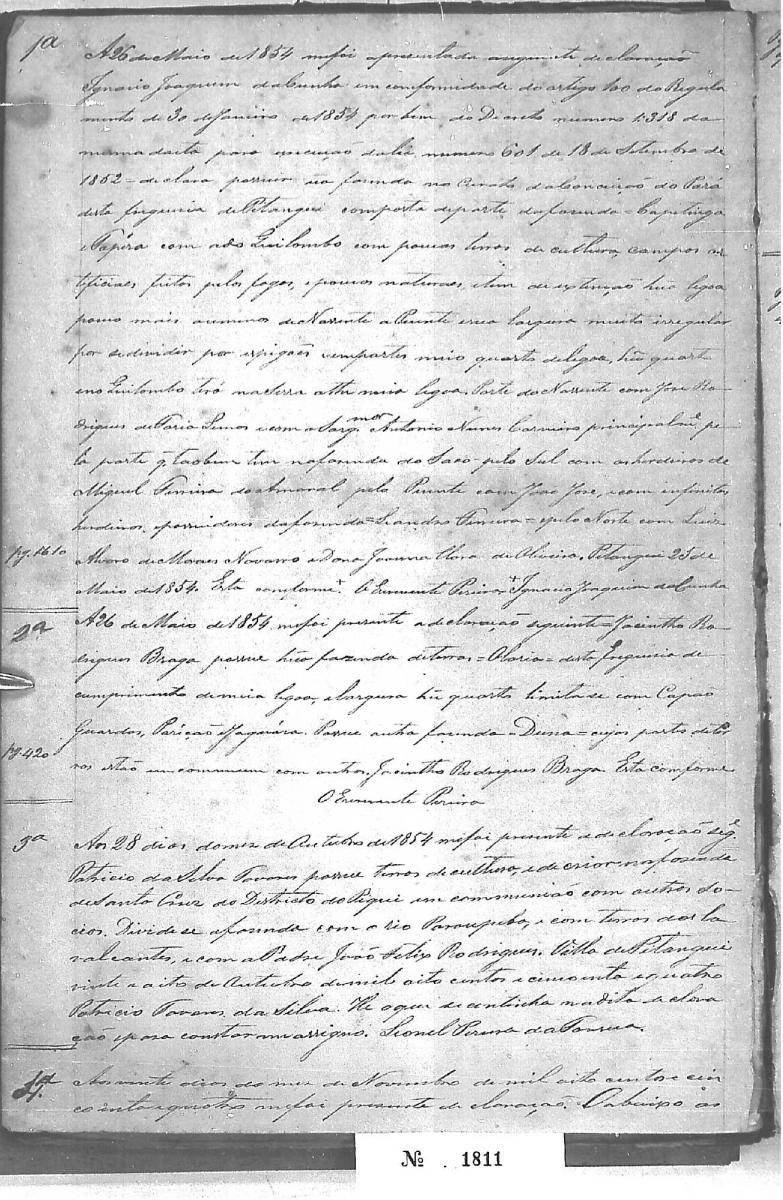 1ª
A 26 de Maio de 1854 me foi apresentada a seguinte declaração
Ignacio Joaquim da Cunha em conformidade do artigo 100 do Regula
mento de 30 de Janeiro de 1854 por bem do Decreto numero 1:318 da
mesma data para execução da Lei numero 601 de 18 de Setembro de
1852 = declara possuir úa fazenda no Curato da Conceição do Pará
desta freguezia de Pitangui composta de parte da fazenda = Capitinga
e Tapéra com a do Quilombo com poucas terras de cultura, campos ar
tificiaes feitos pelos fogos, e poucos naturaes, e tem de extenção húa legoa
pouco mais ou menos de Nascente a Poente e sua largura muito irregular
por se dividir por espigões em partes meio quarto de legoa, hũ quarto
e no Quilombo terá na Serra athe meia legoa. Parte do Nascente com Jose Ro-
drigues de Faria Lemos e com o Sarg. mor Antonio Nunes Carneiro principalme pe
la parte q' tãobem tem na fazenda do Saco pelo Sul com os herdeiros de
Miguel Ferreira do Amaral pelo Poente com João José, e com infinitos
herdeiros, e possuidores da fazenda = Leandro Ferreira = e pelo Norte com Luiz
pg. 1610
Alvaro de Moraes Navarro e Dona Joanna de Oliveira. Pitangui 25 de
Maio de 1854. Está conforme. O Escrevente Pereira + Ignacio Joaquim da Cunha
2ª
A 26 de Maio de 1854 me foi presente a declaração seguinte = Jacintho Ro-
drigues Braga possue húa fazenda de terras = Olaria = desta Freguezia de
cumprimento de meia legoa, e largura hũ quarto limita se com Capão
Guardos, Parição e Jaguára. Possue outra fazenda = Duna = cujas partes de ter
pg. 420
ras estão em commum com outros. Jacintho Rodrigues Braga. Está conforme
O Escrevente Pereira
3ª
Aos 28 dias do mez de Outubro de 1854 me foi presente a declaração seg.e
Patricio da Silva Tavares possue terras de cultura, e de criar na fazenda
de Santa Cruz do Districto do Pequi em communião com outros so-
cios. Divide se a fazenda com o rio Paraupeba, e com terras dos
valcantes, e com a Padre João Felix Rodrigues. Villa de Pitangui
vinte e oito de Outubro de mil oito centos e cincoenta e quatro
Patricio Tavares da Silva. He o que se continha na dita declara
ção e para constar me assigno. Leonel Pereira da Fonseca.
4ª
Aos vinte dias do mez de Novembro de mil oito centos e cin
coenta e quatro me foi presente declaração. O abaixo as
Nº 1811